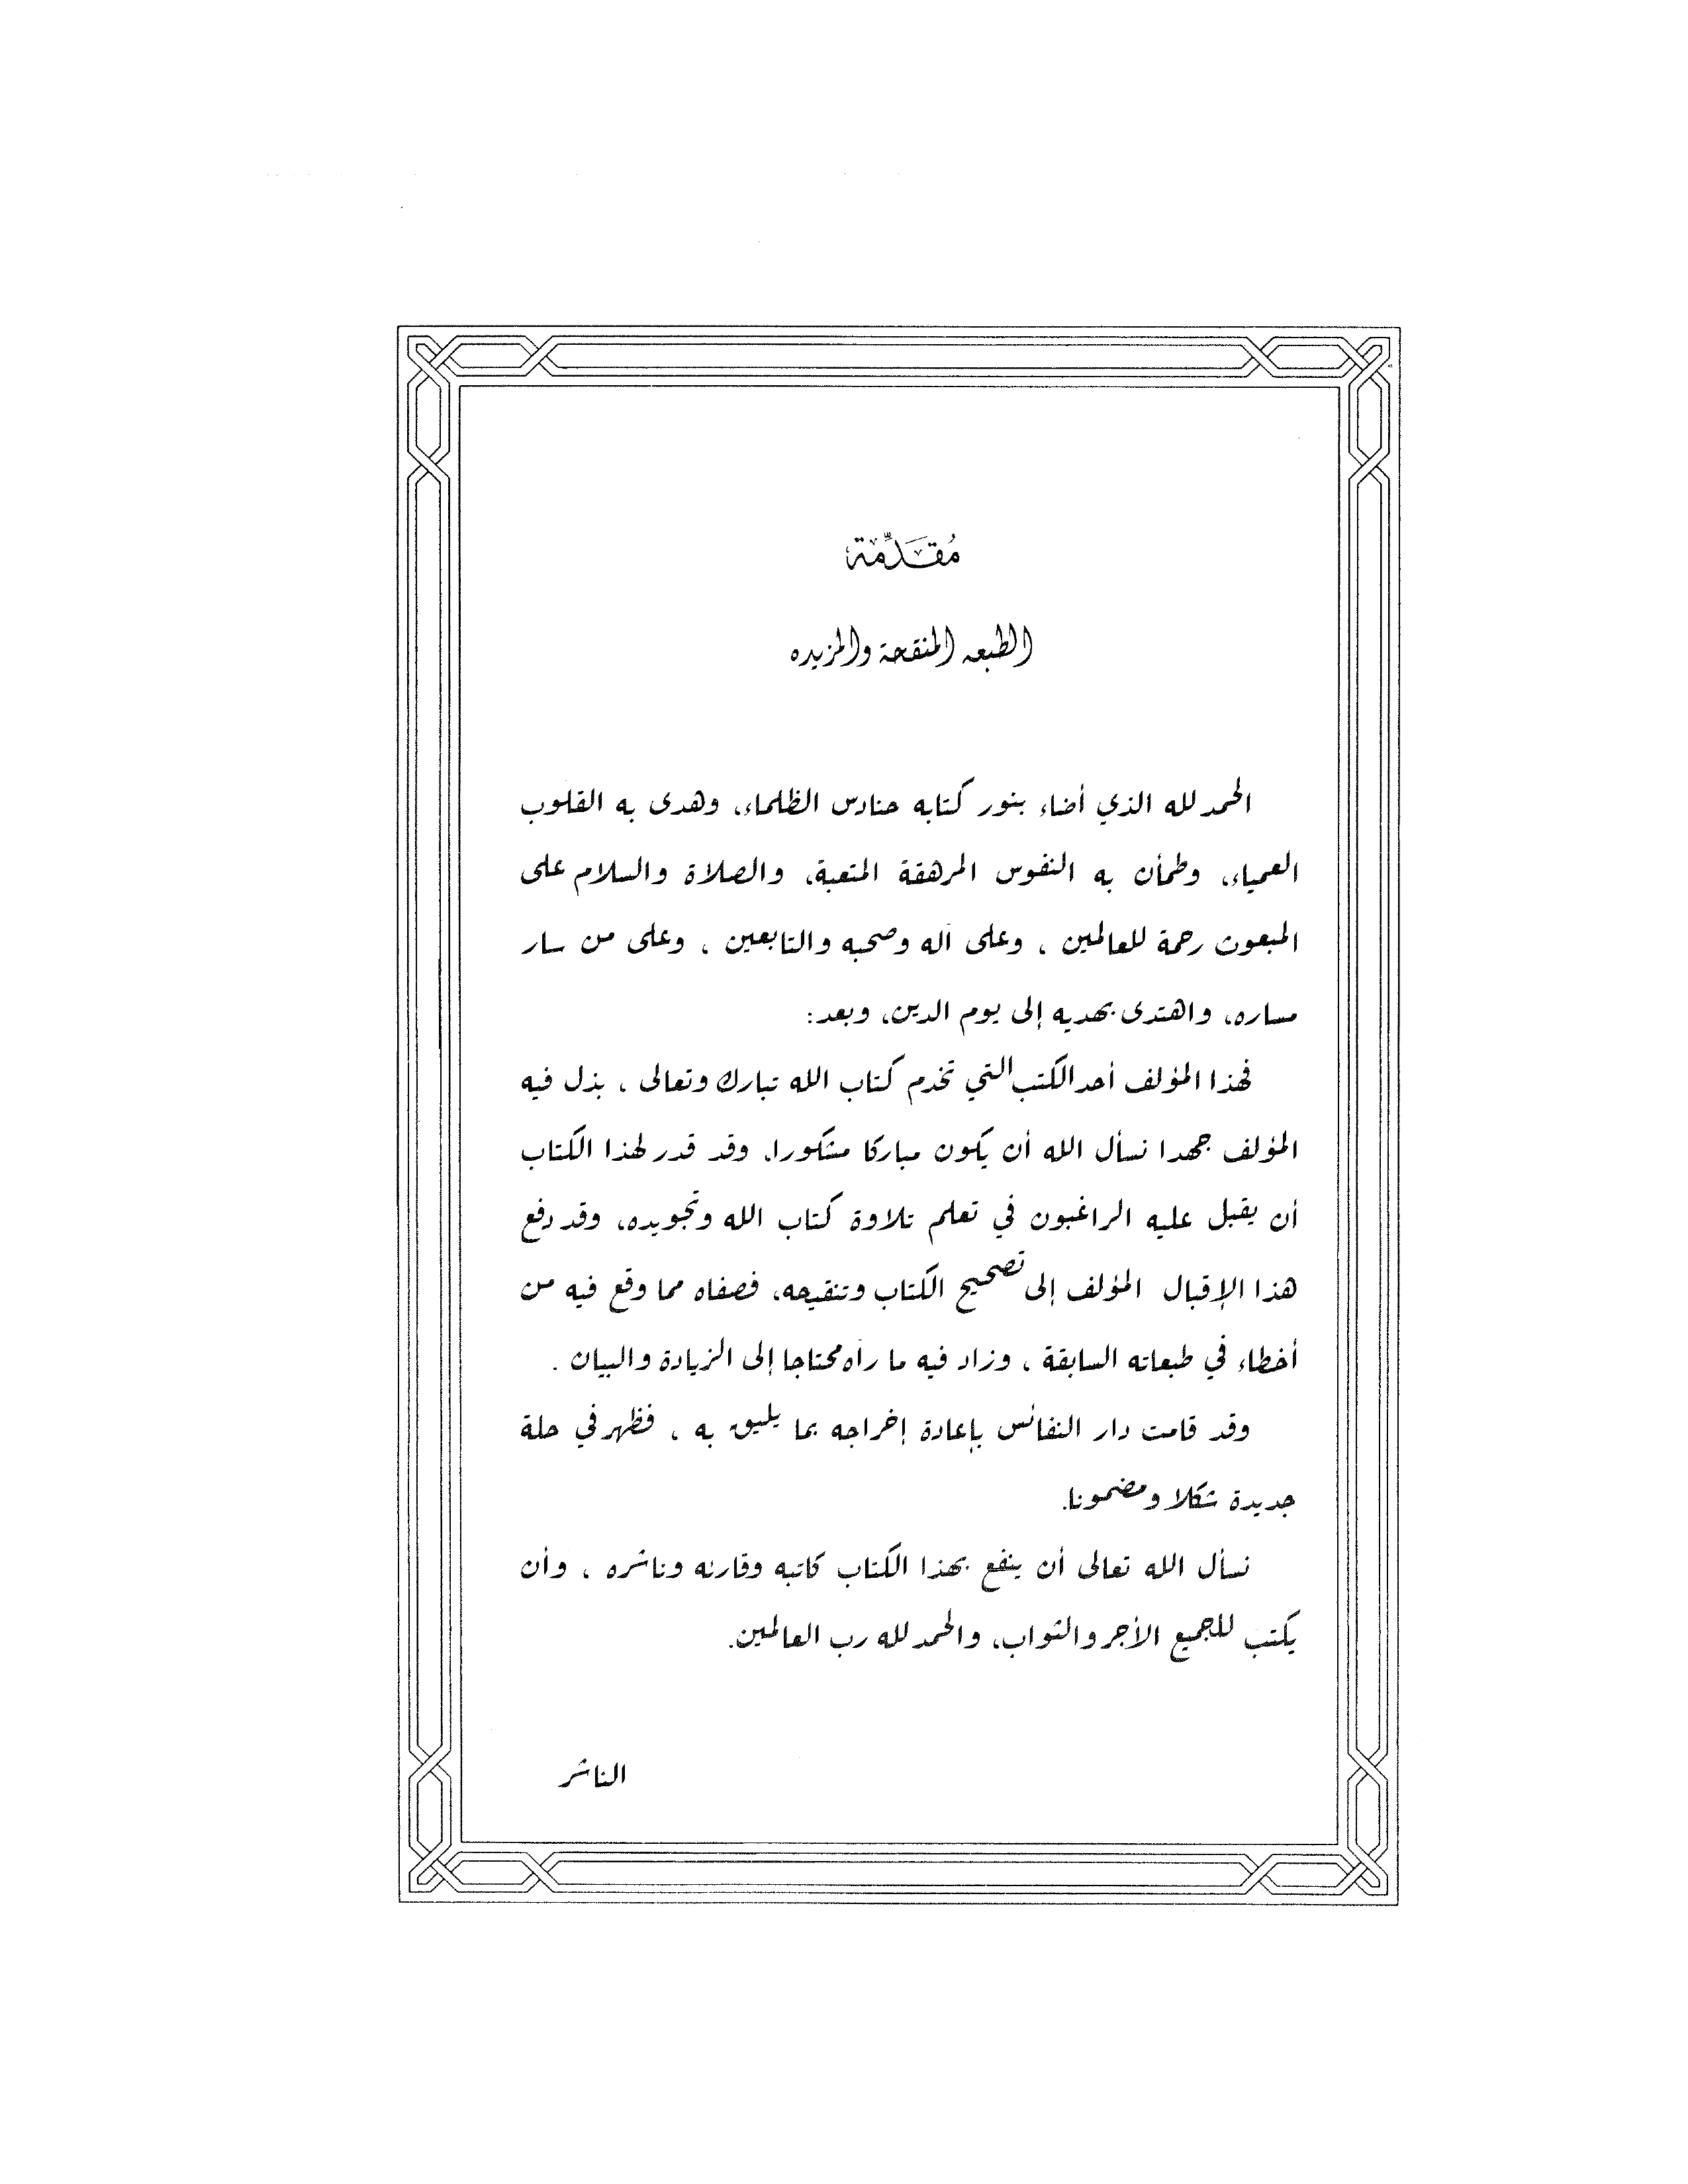 مُقَدِّمَة
الطبعه المنقحة والمزيده
الحمد لله الذي أضاء بنور كتابه حنادس الظلماء، وهدى به القلوب
العمياء، وطمأن به النفوس المرهقة المتعبة، والصلاة والسلام على
المبعوث رحمة للعالمين ، وعلى آله وصحبه والتابعين ، وعلى من سار
مساره، واهتدى بهديه إلى يوم الدين، وبعد:
فهذا المؤلف أحد الكتب التي تخدم كتاب الله تبارك وتعالى ، بذل فيه
المؤلف جهدا نسأل الله أن يكون مباركا مشكورا، وقد قدر لهذا الكتاب
أن يقبل عليه الراغبون في تعلم تلاوة كتاب الله وتجويده، وقد دفع
هذا الإقبال المؤلف إلى تصحيح الكتاب وتنقيحه، فصفاه مما وقع فيه من
أخطاء في طبعاته السابقة ، وزاد فيه ما رآه محتاجا إلى الزيادة والبيان .
وقد قامت دار النفائس بإعادة إخراجه بما يليق به ، فظهر في حلة
جديدة شكلا ومضمونا.
نسأل الله تعالى أن ينفع بهذا الكتاب كاتبه وقارئه وناشره ، وأن
يكتب للجميع الأجر والثواب، والحمد لله رب العالمين.
الناشر